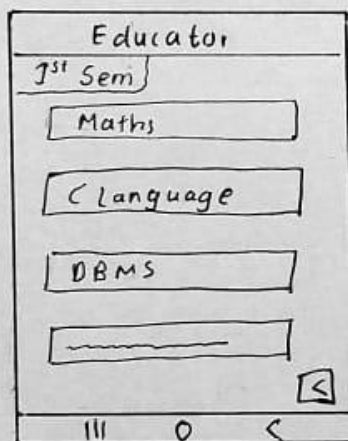 Educator
1st Sem
Maths
C Language
DBMS